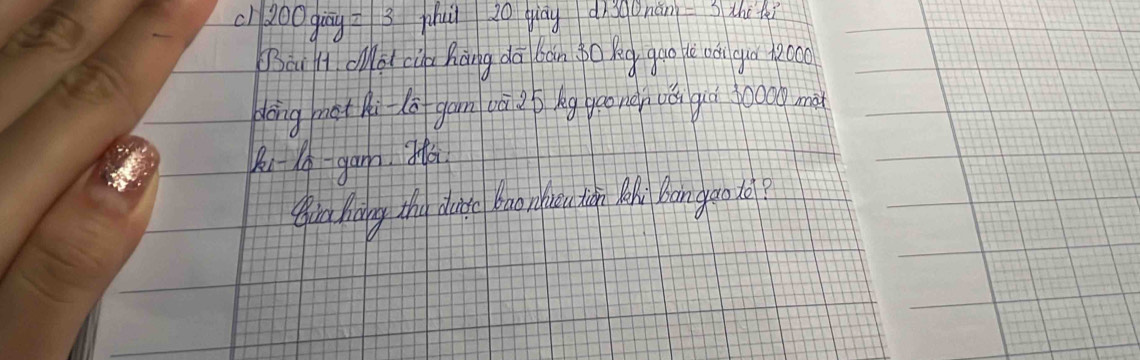 c) 200 giây = 3 phút 20 giây d) 300 năm = 3 thế kỉ
Bài 11 Một cửa hàng đã bán 30 kg gạo tẻ với giá 12000
đồng một ki-lô-gam và 25 kg gạo nếp với giá 30000 một
ki-lô-gam. Hỏi:
Cửa hàng thu được bao nhiêu tiền khi bán gạo tẻ?